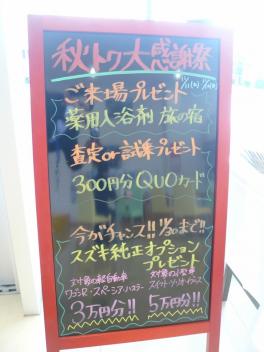 秋トク大感謝祭
ご来場プレゼント
薬用入浴剤 旅の宿
査定or試乗プレゼント
300円分QUOカード
今がチャンス!! 11/30まで!!
スズキ純正オプション
プレゼント
対象の軽自動車
ワゴンR・スペーシア・ハスラー
3万円分!!
対象の小型車
スイフト・ソリオ・イグニス
5万円分!!